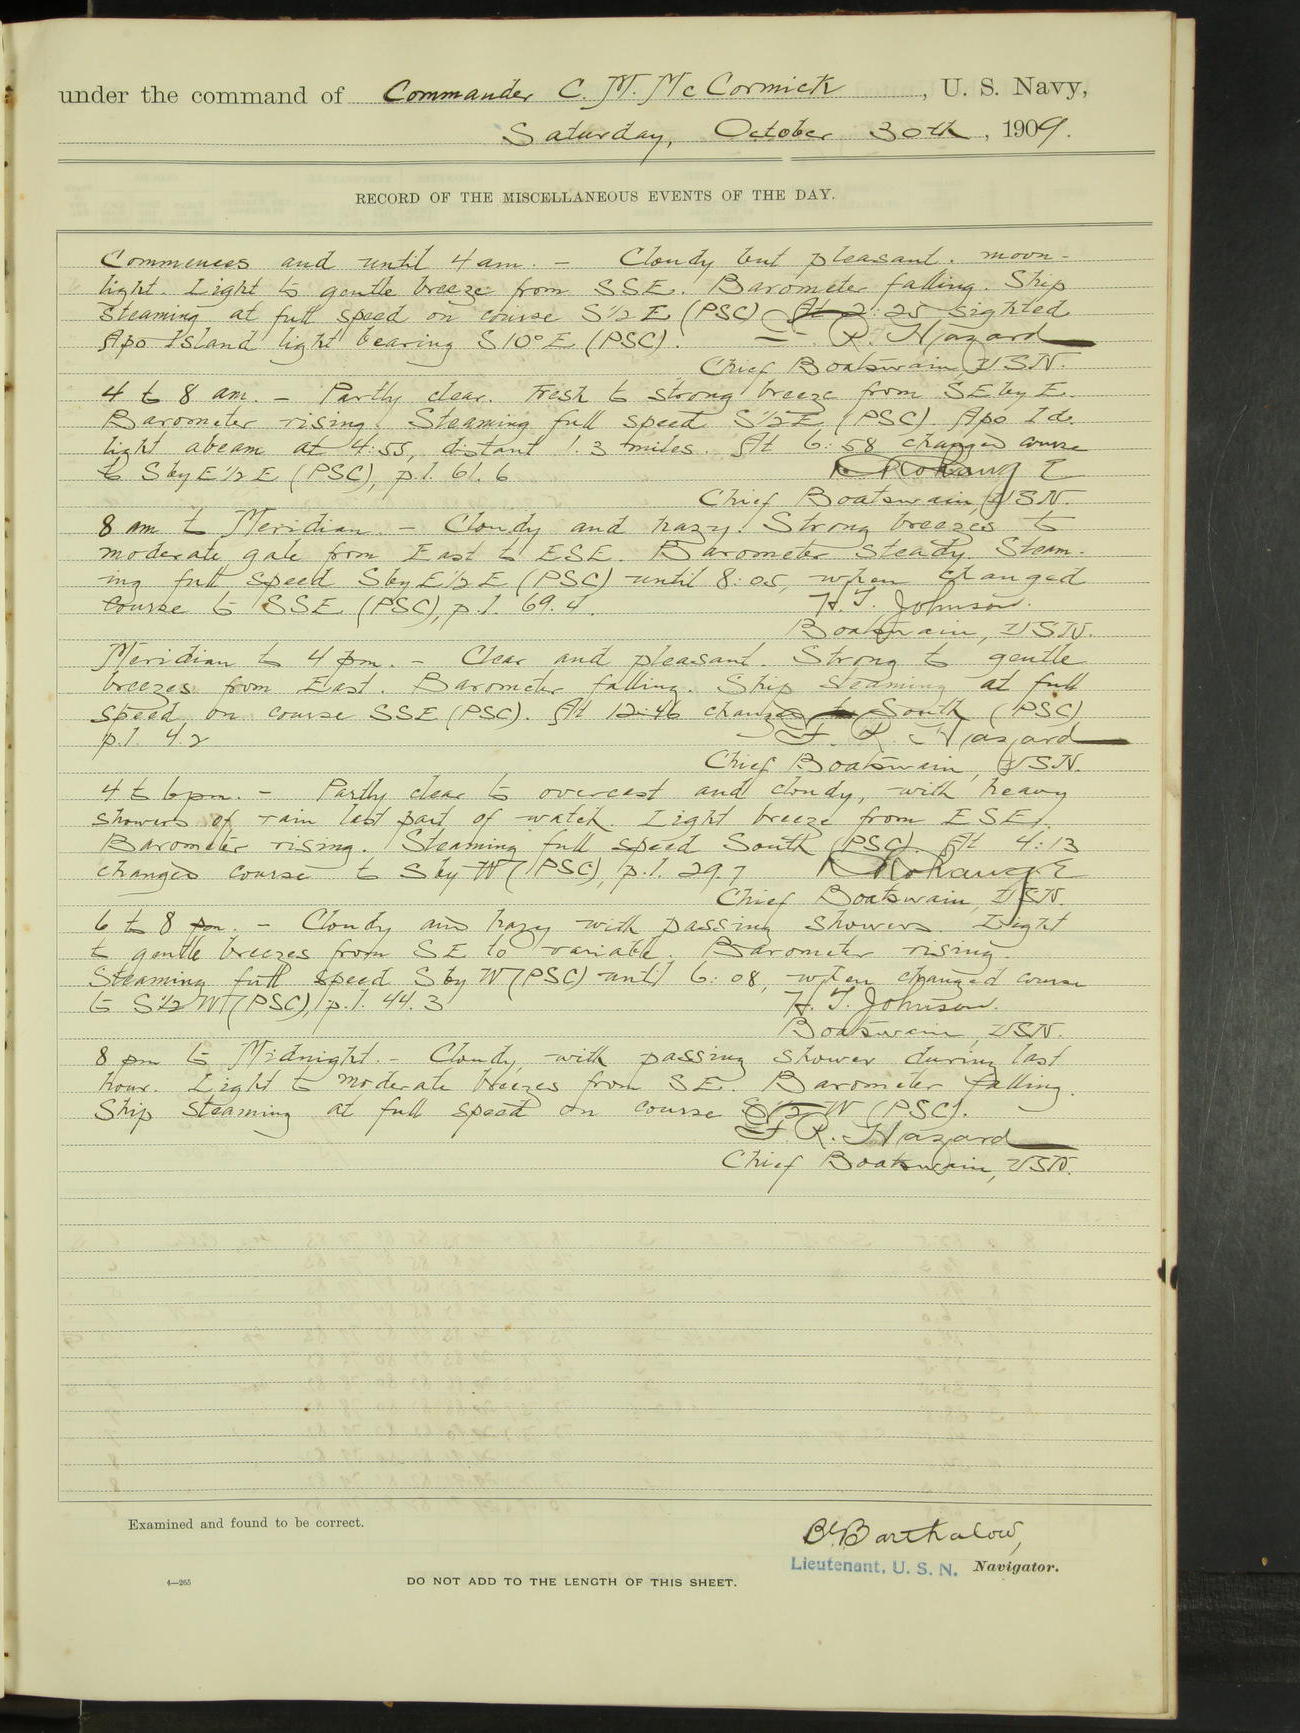 under the command of Commander C. M. McCormick, U. S. Navy,
Saturday, October 30th, 1909.
RECORD OF THE MISCELLANEOUS EVENTS OF THE DAY.
Commences and until 4 am. - Cloudy but pleasant. moon-
light. Light to gentle breeze from SSE. Barometer falling. Ship
steaming at full speed on course S½E (PSC) At 2:25 sighted
Apo Island light bearing S10°E (PSC). F. R. Hazard
Chief Boatswain, USN.
4 to 8 am. - Partly clear. Fresh to strong breeze from SE by E.
Barometer rising. Steaming full speed S½E (PSC) Apo Id.
light abeam at 4:55, distant 1.3 miles. At 6:58 changed course
to S by E½E (PSC), p.l. 61.6
Chief Boatswain, USN.
8 am to Meridian - Cloudy and hazy. Strong breezes to
moderate gale from East to ESE. Barometer steady. Steam-
ing full speed S by E½E (PSC) until 8:05, when changed
course to SSE (PSC), p.l. 69.4. H. T. Johnson.
Boatswain, USN.
Meridian to 4 pm. - Clear and pleasant. Strong to gentle
breezes from East. Barometer falling. Ship steaming at full
speed on course SSE (PSC). At 12:46 changed to South (PSC)
p.l. 4.2 F. R. Hazard
Chief Boatswain, USN.
4 to 6 pm. - Partly clear to overcast and cloudy, with heavy
showers of rain last part of watch. Light breeze from ESE.
Barometer rising. Steaming full speed South (PSC). At 4:13
changed course to S by W (PSC), p.l. 29.7
Chief Boatswain, USN.
6 to 8 pm. - Cloudy and hazy with passing showers. Light
to gentle breezes from SE to variable. Barometer rising.
Steaming full speed S by W (PSC) until 6:08, when changed course
to S½W (PSC), p.l. 44.3 H. T. Johnson.
Boatswain, USN.
8 pm to Midnight. - Cloudy, with passing shower during last
hour. Light to moderate breezes from SE. Barometer falling.
Ship steaming at full speed on course S½W (PSC).
F. R. Hazard
Chief Boatswain, USN.
Examined and found to be correct.
Barthalow,
Lieutenant, U. S. N. Navigator.
4—265
DO NOT ADD TO THE LENGTH OF THIS SHEET.